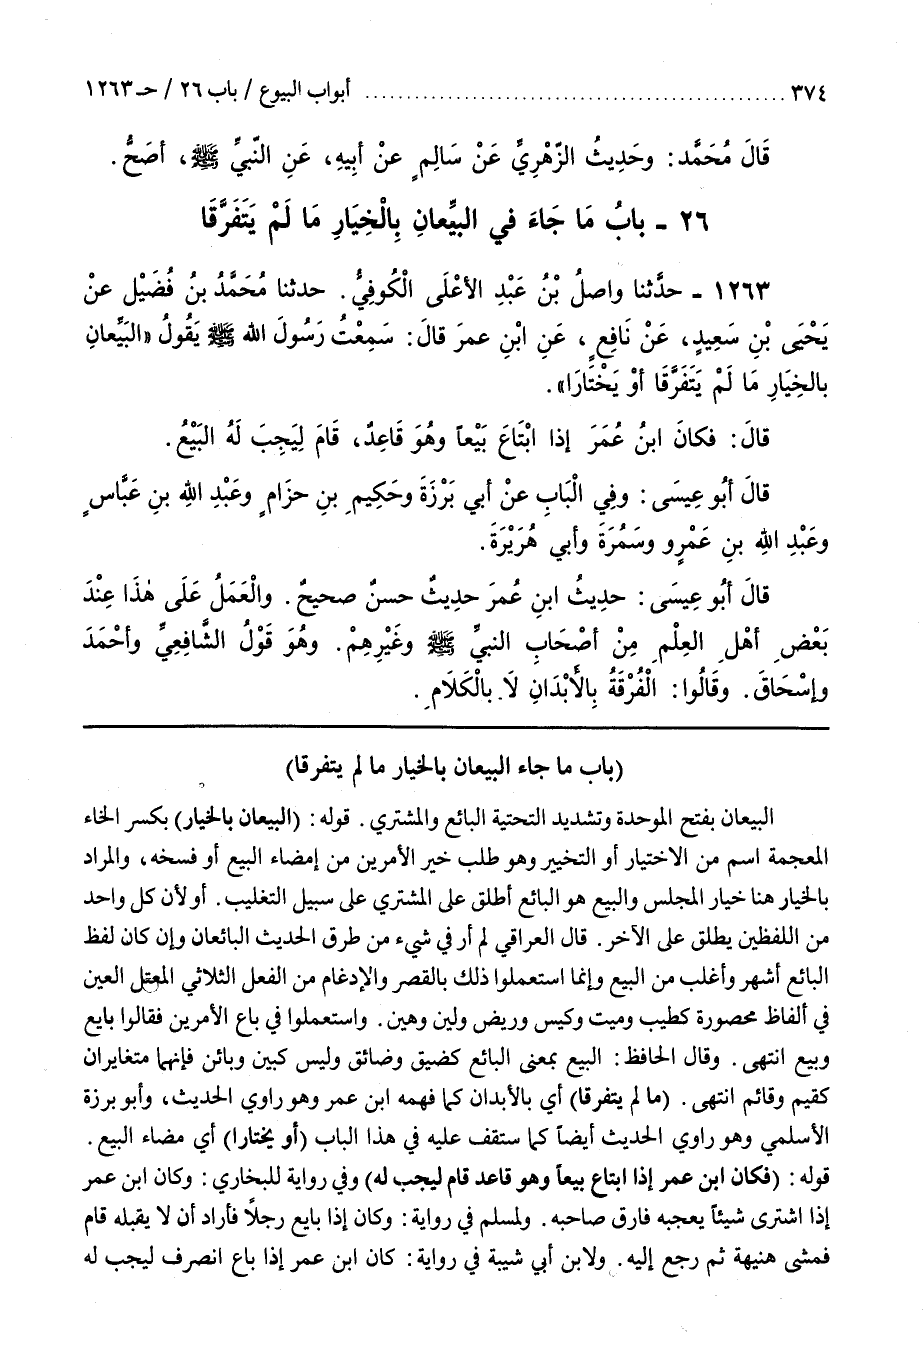 ٣٧٤ ........................................................ أبواب البيوع / باب ٢٦ / حـ ١٢٦٣
قَالَ مُحَمَّد: وحَدِيثُ الزّهْرِيِّ عَنْ سَالِمٍ عنْ أبِيهِ، عَنِ النّبيِّ ﷺ، أصَحُّ.
٢٦ ـ بابُ مَا جَاءَ في البيِّعانِ بِالْخِيَارِ مَا لَمْ يَتَفَرَّقَا
١٢٦٣ ـ حدَّثنا واصلُ بْنُ عَبْدِ الأعْلَى الْكُوفِيُّ. حدثنا مُحَمَّدُ بنُ فُضَيْلٍ عنْ
يَحْيَى بْنِ سَعِيدٍ، عَنْ نَافِعٍ، عَنِ ابْنِ عمرَ قالَ: سَمِعْتُ رَسُولَ الله ﷺ يَقُولُ «البَيِّعانِ
بالخِيَارِ مَا لَمْ يَتَفَرَّقَا أوْ يَخْتَارَا».
قالَ: فكانَ ابنُ عُمَرَ إذا ابْتَاعَ بَيْعاً وهُوَ قَاعِدٌ، قَامَ لِيَجِبَ لَهُ البَيْعُ.
قالَ أبُو عِيسَى: وفِي الْبَابِ عنْ أبي بَرْزَةَ وحَكِيمِ بنِ حِزَامٍ وعَبْدِ اللهِ بنِ عَبَّاسٍ
وعَبْدِ اللهِ بنِ عَمْرٍو وسَمُرَةَ وأبي هُرَيْرَةَ.
قالَ أبُو عِيسَى: حدِيثُ ابنِ عُمرَ حدِيثٌ حسنٌ صحيحٌ. والْعَمَلُ عَلَى هٰذَا عِنْدَ
بَعْضِ أهْلِ العِلْمِ مِنْ أصْحَابِ النبيِّ ﷺ وغَيْرِهِمْ. وهُوَ قَوْلُ الشَّافِعِيِّ وأحْمَدَ
وإسْحَاقَ. وقَالُوا: الْفُرْقَةُ بِالأَبْدَانِ لَا بِالْكَلَامِ.
(باب ما جاء البيعان بالخيار ما لم يتفرقا)
البيعان بفتح الموحدة وتشديد التحتية البائع والمشتري. قوله: (البيعان بالخيار) بكسر الخاء
المعجمة اسم من الاختيار أو التخيير وهو طلب خير الأمرين من إمضاء البيع أو فسخه، والمراد
بالخيار هنا خيار المجلس والبيع هو البائع أطلق على المشتري على سبيل التغليب. أو لأن كل واحد
من اللفظين يطلق على الآخر. قال العراقي لم أر في شيء من طرق الحديث البائعان وإن كان لفظ
البائع أشهر وأغلب من البيع وإنما استعملوا ذلك بالقصر والإدغام من الفعل الثلاثي المعتل العين
في ألفاظ محصورة كطيب وميت وكيس وريض ولين وهين. واستعملوا في باع الأمرين فقالوا بايع
وبيع انتهى. وقال الحافظ: البيع بمعنى البائع كضيق وضائق وليس كبين وبائن فإنهما متغايران
كقيم وقائم انتهى. (ما لم يتفرقا) أي بالأبدان كما فهمه ابن عمر وهو راوي الحديث، وأبو برزة
الأسلمي وهو راوي الحديث أيضاً كما ستقف عليه في هذا الباب (أو يختارا) أي مضاء البيع.
قوله: (فكان ابن عمر إذا ابتاع بيعاً وهو قاعد قام ليجب له) وفي رواية للبخاري: وكان ابن عمر
إذا اشترى شيئاً يعجبه فارق صاحبه. ولمسلم في رواية: وكان إذا بايع رجلاً فأراد أن لا يقبله قام
فمشى هنيهة ثم رجع إليه. ولابن أبي شيبة في رواية: كان ابن عمر إذا باع انصرف ليجب له